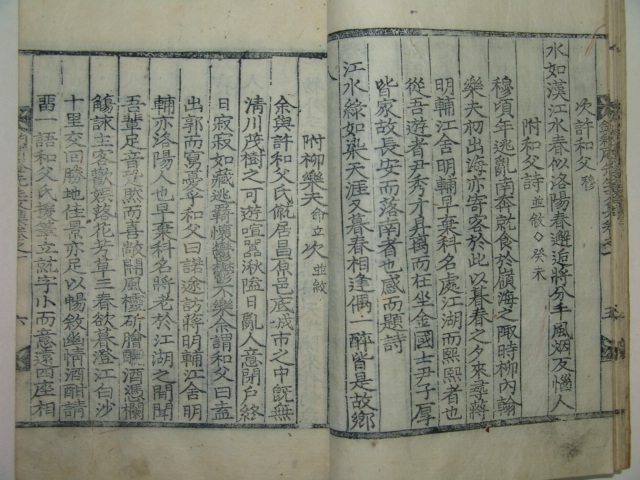 次許和父穆
水如漢江水春似洛陽春邂逅將分手風烟友惱人
附和父詩並敘◇癸未
穆頃年逃亂南奔就食於嶺海之陬時柳內翰
樂夫初出海亦寄客於此以暮春之夕來尋蔣
明輔江舍明輔早棄科名處江湖而熙熙者也
從吾遊者尹秀才昇离而在坐金國士尹子厚
皆家故長安而落南者也感而題詩
江水綠如染天涯又暮春相逢偶一醉皆是故鄉
附柳樂夫命立次並敘
余與許和父氏僦居昌原邑底城市之中旣無
清川茂樹之可遊喧囂湫隘日亂人意閉戶終
日寂寂如藏逃竄懷鬱鬱不樂余謂和父曰盍
出郭而寫憂乎和父曰諾途訪蔣明輔江舍明
輔亦洛陽人也早棄科名將老於江湖之間聞
吾輩足音跫然而喜敞開風欞斫膾釃酒憑欄
觴詠主客歡娛落花芳草三春欲暮澄江白沙
十里交回勝地住景亦足以暢敘幽情酒酣請
留一語和父援筆立就字小而意遠四座相
五
六